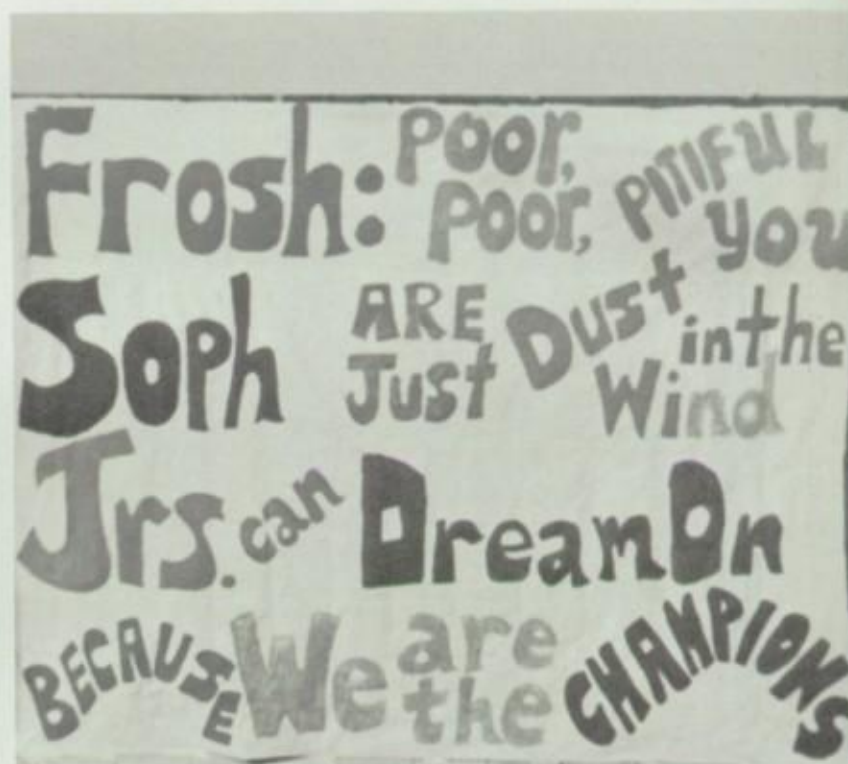 Frosh: Poor, Poor, PITIFUL you
Soph ARE Just Dust in the Wind
Jrs. can Dream On
BECAUSE We are the CHAMPIONS